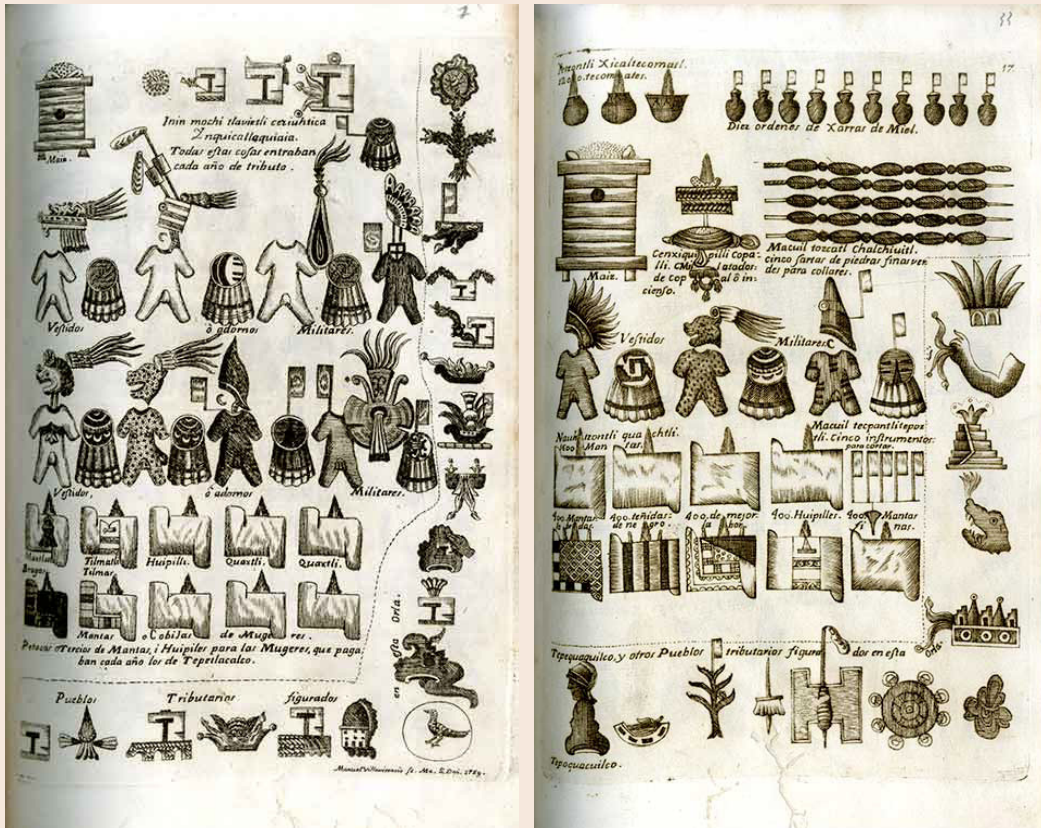 2
Maiz.
Inin mochi tlavietli cexiuhtica
Ynquicallaquiaia.
Todas estas cosas entraban
cada año de tributo.
Vestidos ò adornos Militares.
Vestidos, ò adornos Militares.
Tilmatli Huipilli. Quaxtli. Quaxtli.
Tilmas
Mantas o Cobijas de Mugeres.
Petacas o Tercios de Mantas, i Huipiles para las Mugeres, que paga
ban cada año los de Tepetlacalco.
Pueblos Tributarios figurados
en esta Orla.
33
17.
Xicaltecomatl.
tecomates.
Diez ordenes de Xarras de Miel.
Maiz.
Cenxiquipilli Copa
lli.
atados
de Copal ô in
cienso.
Macuil tozcatl Chalchiuitl.
cinco sartas de piedras finas ver
des para collares.
Vestidos Militares
quachtli.
1600 Mantas.
Macuil tecpantlitepoz
tli. Cinco instrumentos
para cortar.
400 Mantas 400 teñidas 400 de mejor 400 Huipiles. 400 Mantas
de negro. labor. finas.
Orla.
Tepequaquilco, y otros Pueblos tributarios figurados en esta
Tepoquacuilco.